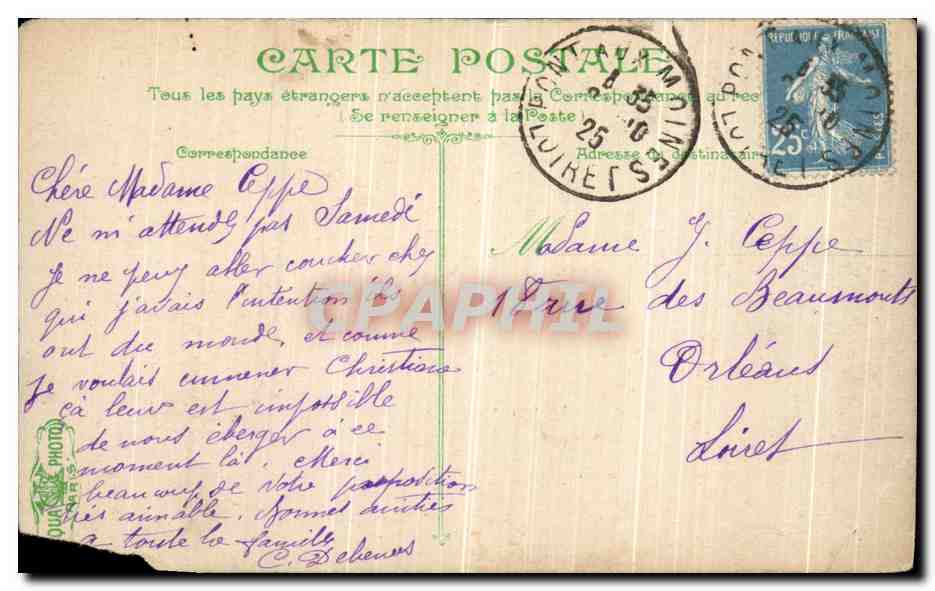 CARTE POSTALE
Tous les pays étrangers n'acceptent pas la Correspondance au rec
(Se renseigner à la Poste)
Correspondance
Adresse du destinataire
REPUBLIQUE FRANÇAISE
25c
POSTES
PONT AUX MOINES
LOIRET
35
10
25
Chère Madame Ceppe
Ne m'attendez pas Samedi
Je ne peux aller coucher chez
qui j'avais l'intention ils
ont du monde, et comme
Je voulais emmener Christiane
çà leur est impossible
de nous éberger à ce
moment là. Merci
beaucoup de votre proposition
très aimable. Bonnes amitiés
a toute la famille
Madame J. Ceppe
rue des Beaumonts
Orléans
Loiret
CPAPHIL
PHOTO
PARIS